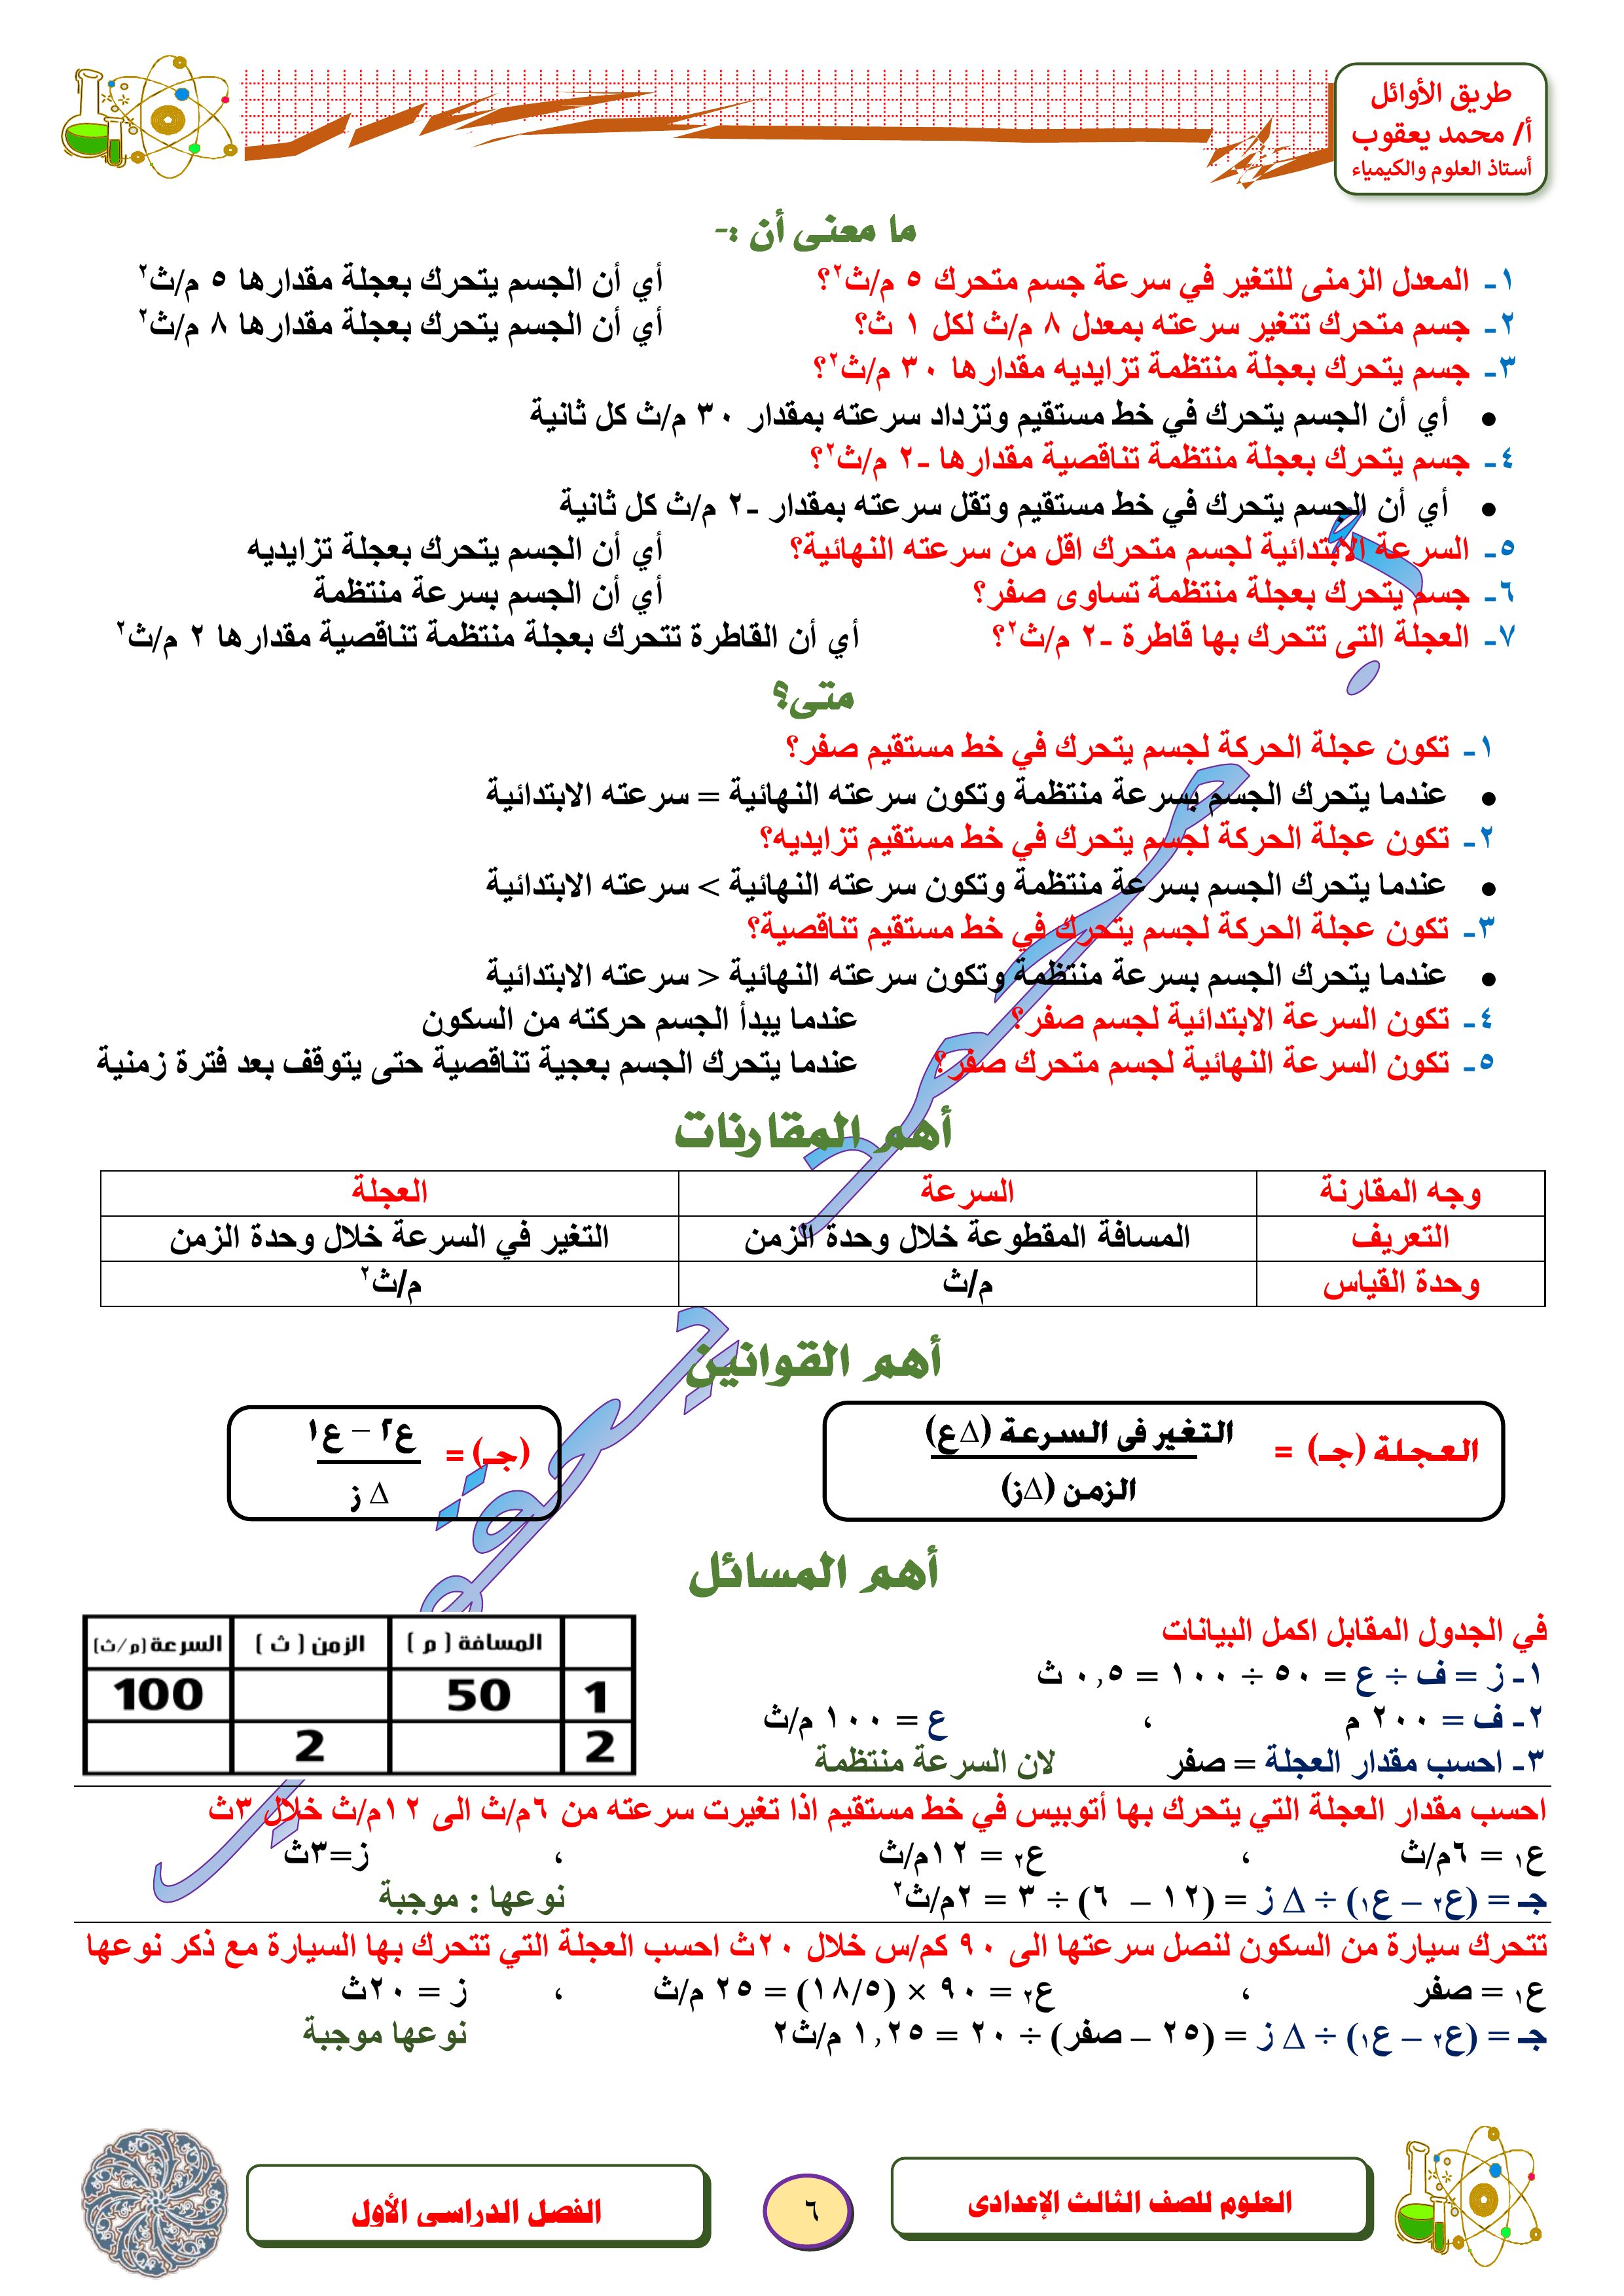 طريق الأوائل
أ/ محمد يعقوب
أستاذ العلوم والكيمياء
ما معنى أن :-
١- المعدل الزمنى للتغير في سرعة جسم متحرك ٥ م/ث٢؟ أي أن الجسم يتحرك بعجلة مقدارها ٥ م/ث٢
٢- جسم متحرك تتغير سرعته بمعدل ٨ م/ث لكل ١ ث؟ أي أن الجسم يتحرك بعجلة مقدارها ٨ م/ث٢
٣- جسم يتحرك بعجلة منتظمة تزايديه مقدارها ٣٠ م/ث٢؟
• أي أن الجسم يتحرك في خط مستقيم وتزداد سرعته بمقدار ٣٠ م/ث كل ثانية
٤- جسم يتحرك بعجلة منتظمة تناقصية مقدارها -٢ م/ث٢؟
• أي أن الجسم يتحرك في خط مستقيم وتقل سرعته بمقدار -٢ م/ث كل ثانية
٥- السرعة الابتدائية لجسم متحرك اقل من سرعته النهائية؟ أي أن الجسم يتحرك بعجلة تزايديه
٦- جسم يتحرك بعجلة منتظمة تساوى صفر؟ أي أن الجسم بسرعة منتظمة
٧- العجلة التى تتحرك بها قاطرة -٢ م/ث٢؟ أي أن القاطرة تتحرك بعجلة منتظمة تناقصية مقدارها ٢ م/ث٢
متى؟
١- تكون عجلة الحركة لجسم يتحرك في خط مستقيم صفر؟
• عندما يتحرك الجسم بسرعة منتظمة وتكون سرعته النهائية = سرعته الابتدائية
٢- تكون عجلة الحركة لجسم يتحرك في خط مستقيم تزايديه؟
• عندما يتحرك الجسم بسرعة منتظمة وتكون سرعته النهائية > سرعته الابتدائية
٣- تكون عجلة الحركة لجسم يتحرك في خط مستقيم تناقصية؟
• عندما يتحرك الجسم بسرعة منتظمة وتكون سرعته النهائية < سرعته الابتدائية
٤- تكون السرعة الابتدائية لجسم صفر؟ عندما يبدأ الجسم حركته من السكون
٥- تكون السرعة النهائية لجسم متحرك صفر؟ عندما يتحرك الجسم بعجية تناقصية حتى يتوقف بعد فترة زمنية
أهم المقارنات
وجه المقارنة السرعة العجلة
التعريف المسافة المقطوعة خلال وحدة الزمن التغير في السرعة خلال وحدة الزمن
وحدة القياس م/ث م/ث٢
أهم القوانين
العجلة (جـ) = التغير فى السرعة (∆ع)
الزمن (∆ز)
(جـ) = ع٢ – ع١
∆ ز
أهم المسائل
في الجدول المقابل اكمل البيانات
١- ز = ف ÷ ع = ٥٠ ÷ ١٠٠ = ٠,٥ ث
٢- ف = ٢٠٠ م ، ع = ١٠٠ م/ث
٣- احسب مقدار العجلة = صفر لان السرعة منتظمة
المسافة ( م ) الزمن ( ث ) السرعة (م/ث)
1 50 100
2 2
احسب مقدار العجلة التي يتحرك بها أتوبيس في خط مستقيم اذا تغيرت سرعته من ٦م/ث الى ١٢م/ث خلال ٣ث
ع١ = ٦م/ث ، ع٢ = ١٢م/ث ، ز=٣ث
جـ = (ع٢ – ع١) ÷ ∆ ز = (١٢ – ٦) ÷ ٣ = ٢م/ث٢ نوعها : موجبة
تتحرك سيارة من السكون لنصل سرعتها الى ٩٠ كم/س خلال ٢٠ث احسب العجلة التي تتحرك بها السيارة مع ذكر نوعها
ع١ = صفر ، ع٢ = ٩٠ × (١٨/٥) = ٢٥ م/ث ، ز = ٢٠ث
جـ = (ع٢ – ع١) ÷ ∆ ز = (٢٥ – صفر) ÷ ٢٠ = ١,٢٥ م/ث٢ نوعها موجبة
العلوم للصف الثالث الإعدادى
٦
الفصل الدراسى الأول